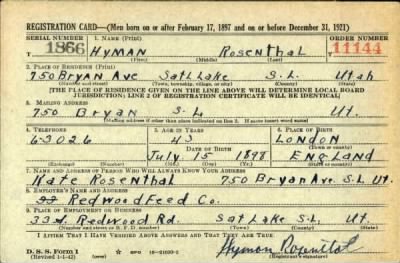 REGISTRATION CARD—(Men born on or after February 17, 1897 and on or before December 31, 1921)
SERIAL NUMBER 1. NAME (Print) ORDER NUMBER
1866 HYMAN Rosenthal 11144
(First) (Middle) (Last)
2. PLACE OF RESIDENCE (Print)
750 Bryan Ave Salt Lake S.L. Utah
(Number and street) (Town, township, village, or city) (County) (State)
[THE PLACE OF RESIDENCE GIVEN ON THE LINE ABOVE WILL DETERMINE LOCAL BOARD
JURISDICTION; LINE 2 OF REGISTRATION CERTIFICATE WILL BE IDENTICAL]
3. MAILING ADDRESS
750 Bryan S-L Ut.
[Mailing address if other than place indicated on line 2. If same insert word same]
4. TELEPHONE 5. AGE IN YEARS 6. PLACE OF BIRTH
63026 43 LONDON
DATE OF BIRTH (Town or county)
July. 15 1898 ENGLAND
(Exchange) (Number) (Mo.) (Day) (Yr.) (State or country)
7. NAME AND ADDRESS OF PERSON WHO WILL ALWAYS KNOW YOUR ADDRESS
Kate Rosenthal 750 Bryan Ave. S.L. Ut.
8. EMPLOYER'S NAME AND ADDRESS
Redwood Feed Co.
9. PLACE OF EMPLOYMENT OR BUSINESS
Redwood Rd. Salt Lake S-L. Ut.
(Number and street or R. F. D. number) (Town) (County) (State)
I AFFIRM THAT I HAVE VERIFIED ABOVE ANSWERS AND THAT THEY ARE TRUE.
D. S. S. Form 1
(Revised 1-1-42) (over)
Hyman Rosenthal